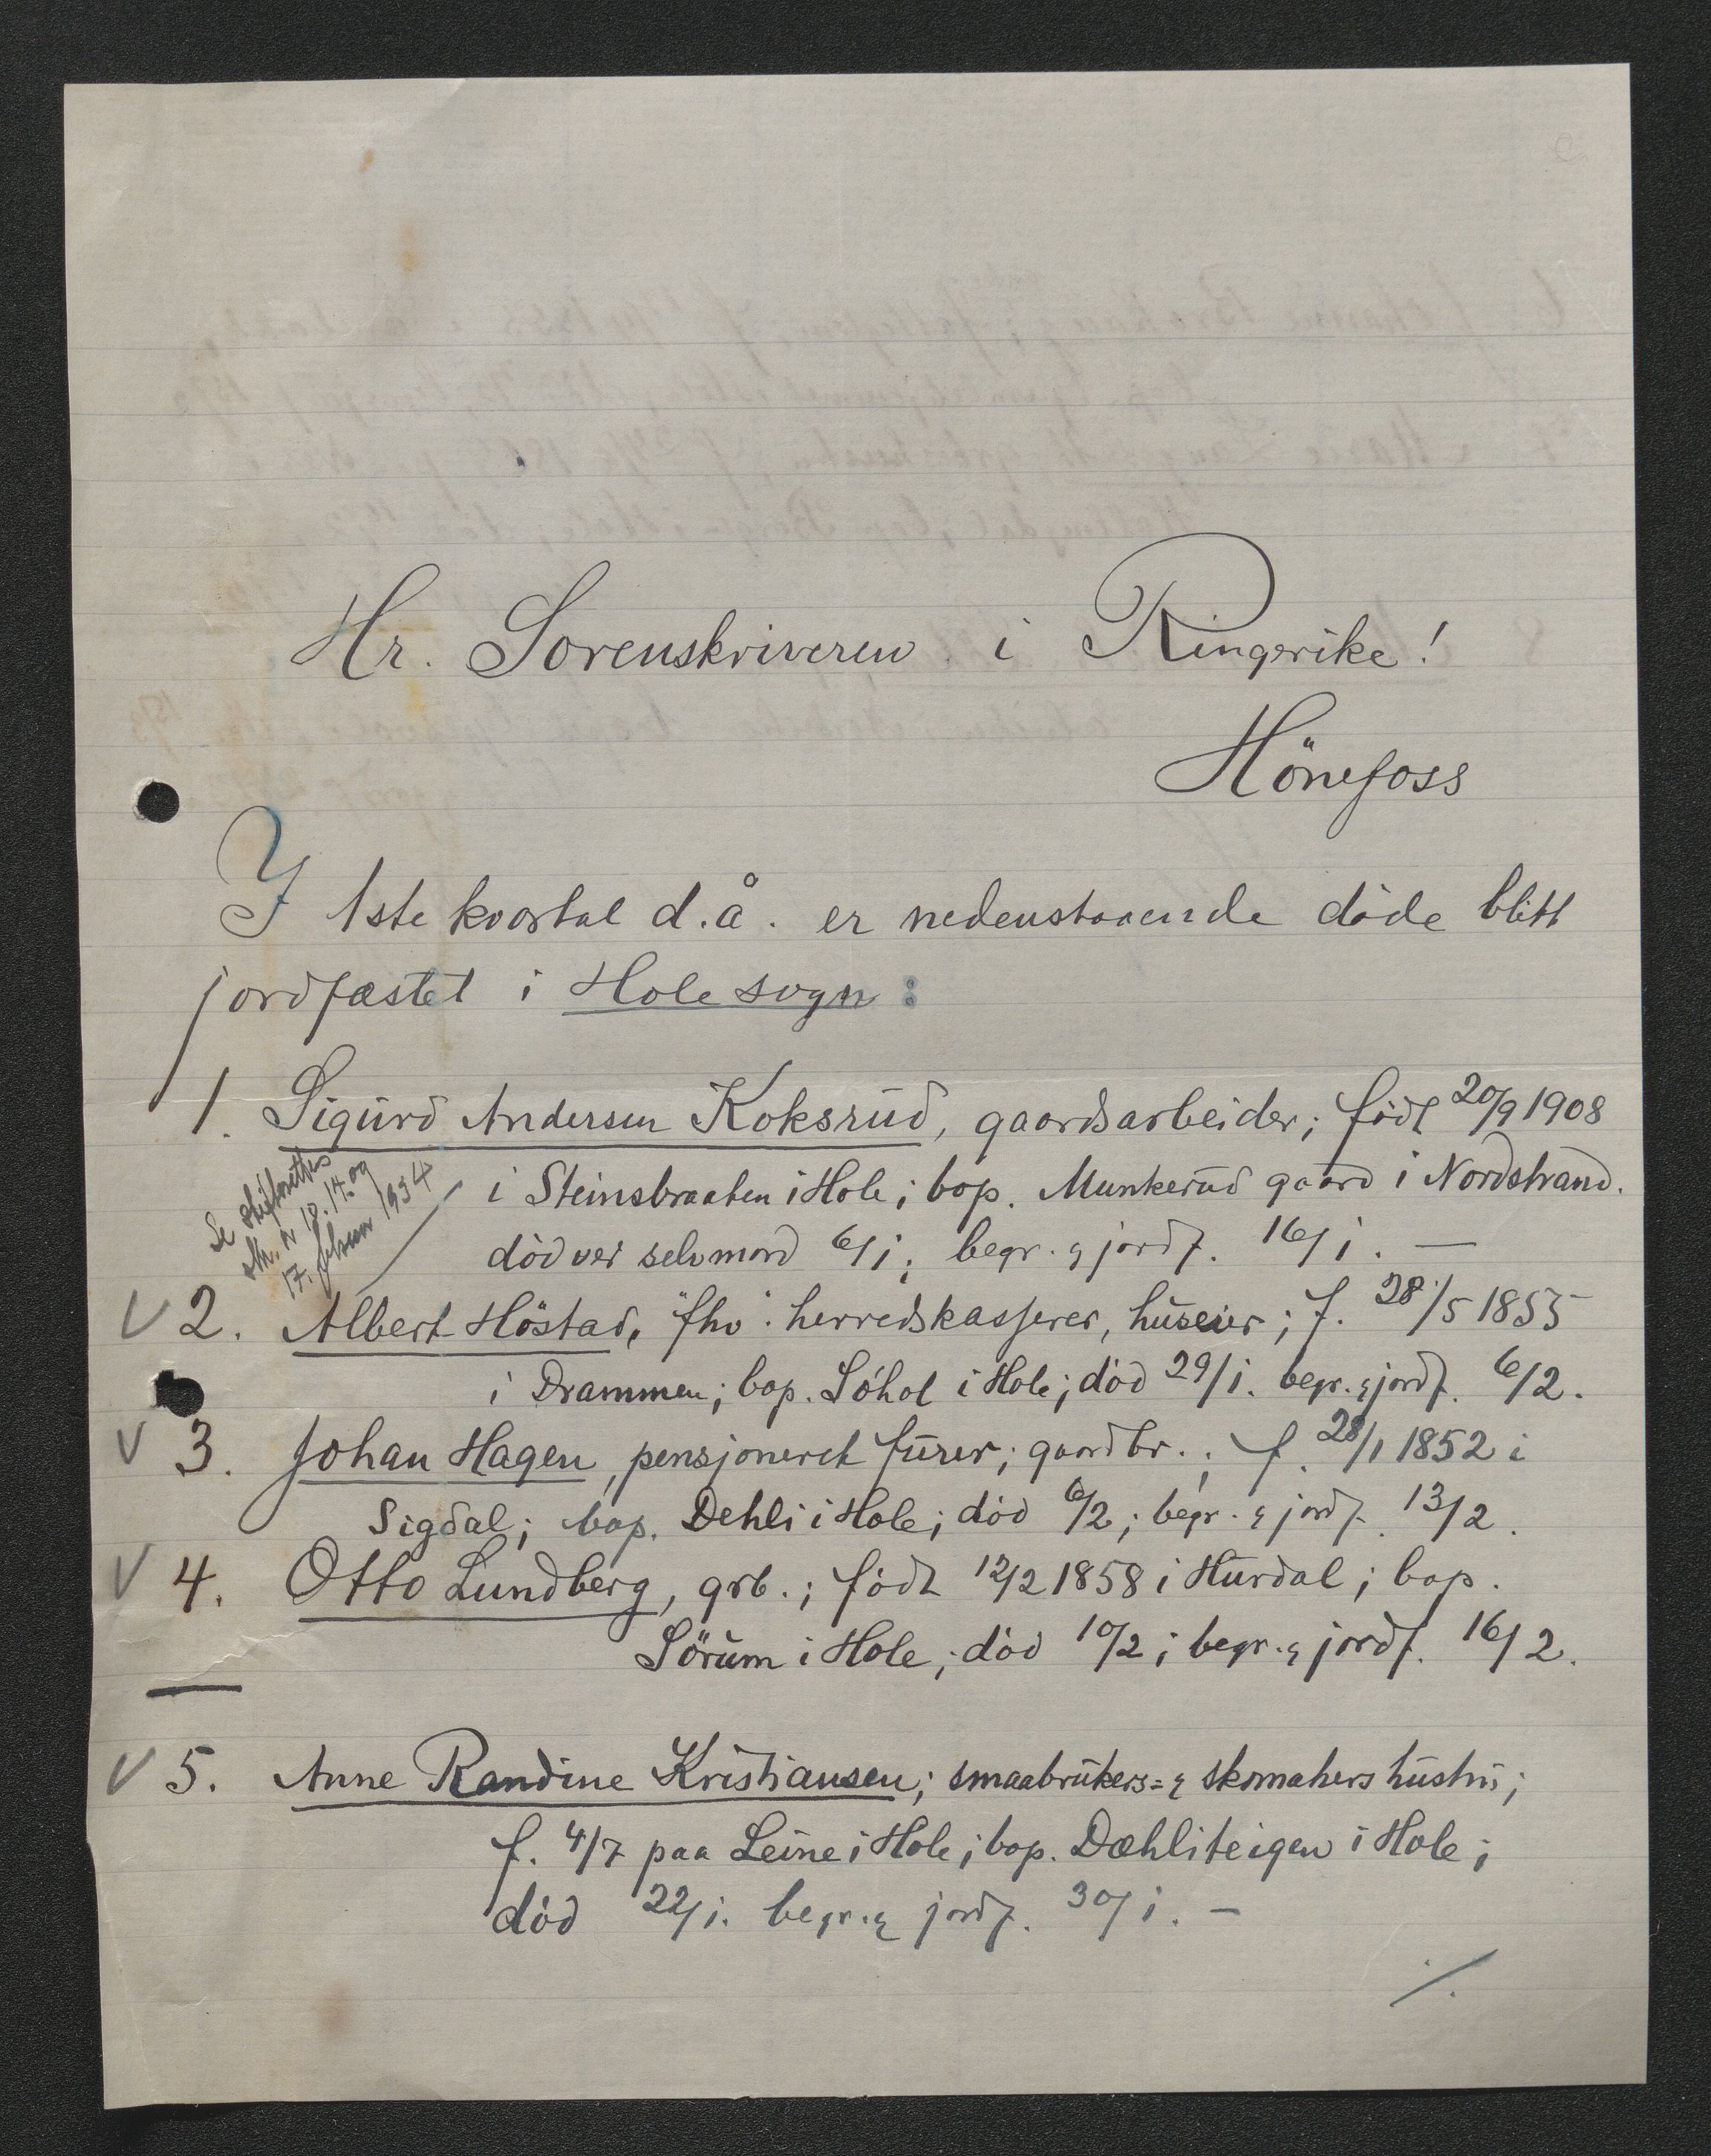 Hr. Sorenskriveren i Ringerike!
Hönefoss
I 1ste kvartal d.å. er nedenstaaende döde blitt
jordfæstet i Hole sogn:
1. Sigurd Andersen Koksrud, gaardsarbeider; födt 20/9 1908
i Steinsbraaten i Hole; bop. Munkerud gaard i Nordstrand.
död ved selvmord 6/1; begr. & jordf. 16/1. —
Se skifteretten
skr. n 10. 14. og
17. februar 1934
V 2. Albert Höstad, "fhv". herredskasserer, huseier; f. 28/5 1855
i Drammen; bop. Söhol i Hole; död 29/1. begr. & jordf. 6/2.
V 3. Johan Hagen, pensjoneret furer; gaardbr.; f. 28/1 1852 i
Sigdal; bop. Dehli i Hole; död 6/2; begr. & jordf. 13/2.
V 4. Otto Lundberg, grb.; födt 12/2 1858 i Hurdal; bop.
Sörum i Hole; död 10/2; begr. & jordf. 16/2.
V 5. Anne Randine Kristiansen; smaabrukers= & skomakers hustru;
f. 4/7 paa Leine i Hole; bop. Dæhliteigen i Hole;
död 22/1. begr. & jordf. 30/1. —
./.